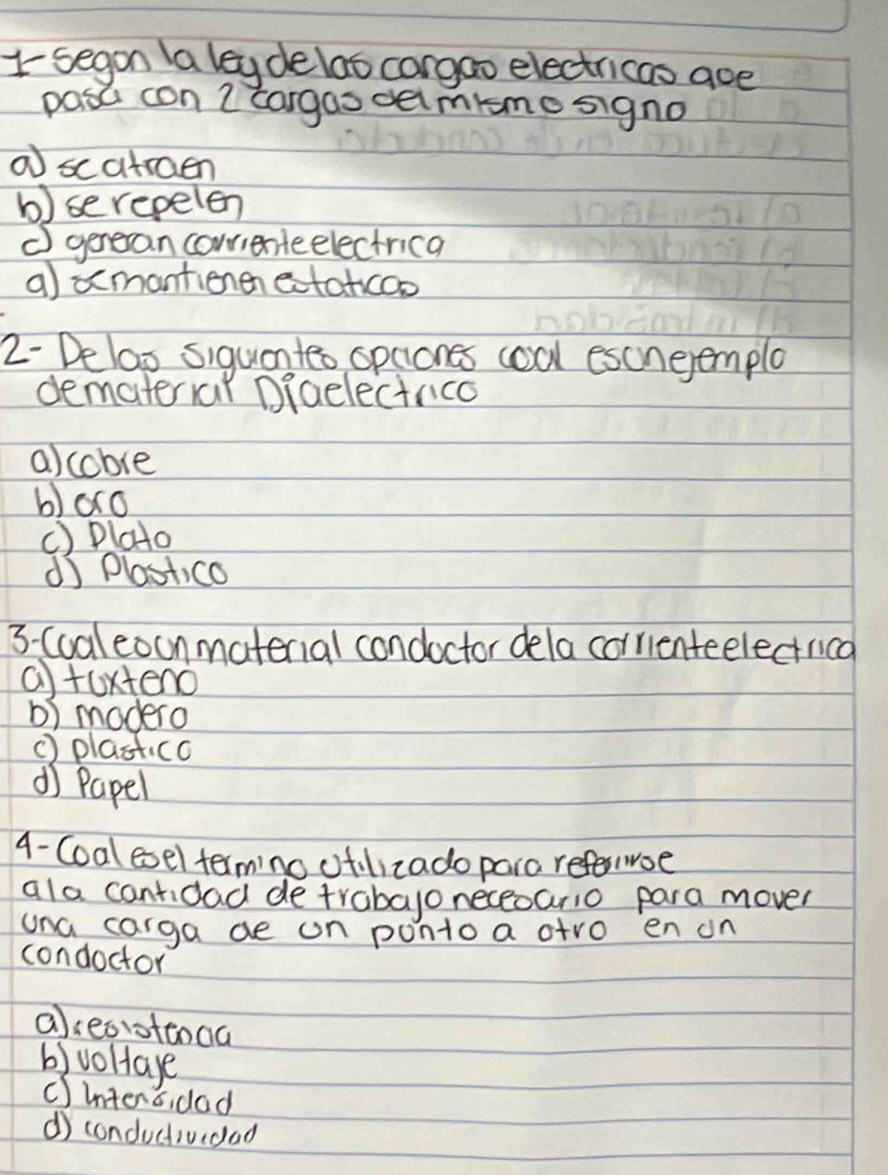 1- segun la ley de las cargas electricas que
pasa con 2 cargas del mismo signo
a) se atraen
b) se repelen
c) generan corriente electrica
d) se mantienen estaticas
2- De las siguientes opciones cual es un ejemplo
de material Diaelectrico
a) cobre
b) oro
c) Plata
d) Plastico
3- Cual es un material conductor de la corriente electrica
a)
b) madera
c) plastico
d) Papel
4- Cual es el termino utilizado para referirse
a la cantidad de trabajo necesario para mover
una carga de un punto a otro en un
conductor
a) resistencia
b) voltaje
c) Intensidad
d) conductividad